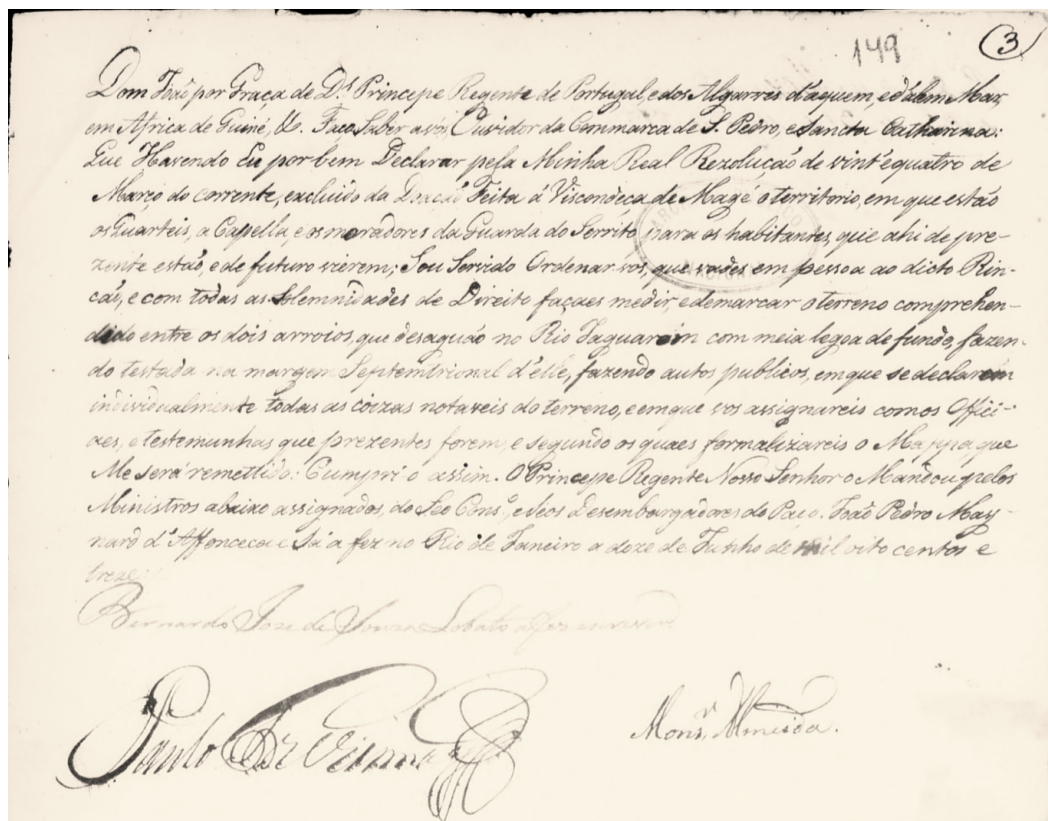 149
3
Dom João por Graça de D.s Principe Regente de Portugal, e dos Algarves d'aquem, e d'alem Mar,
em Africa de Guiné, &. Faço Saber a vós Ouvidor da Commarca de S. Pedro, e Sancta Catharina:
Que Havendo Eu por bem Declarar pela Minha Real Rezolução de vint'e quatro de
Março do corrente, excluido da Doação Feita á Viscondeça de Magé o territorio, em que estão
os Quarteis, a Capella, e os moradores da Guarda do Serrito para os habitantes, que ahi de pre-
zente estão, e de futuro vierem; Sou Servido Ordenar vos, que vades em pessoa ao dicto Rin-
cão, e com todas as solemnidades de Direito façaes medir, e demarcar o terreno comprehen-
dido entre os dois arroios, que desaguão no Rio Jaguarão com meia legoa de fundo, fazen-
do testada na margem Septemtrional d'elle, fazendo autos publicos, em que se declarem
individualmente todas as coizas notaveis do terreno, e em que vos assignareis com os Offici-
aes, e testemunhas que prezentes forem, e segundo os quaes formalizareis o Mappa, que
Me será remettido: Cumpri o assim. O Principe Regente Nosso Senhor o Mandou pelos
Ministros abaixo assignados, do Seo Cons.o, e Seos Desembargadores do Paço. João Pedro May-
nard d'Affonceca e Sá a fez no Rio de Janeiro a doze de Junho de mil oito centos e
treze.
Bernardo Joze de Souza Lobato a fez escrever
Paulo Fr Vianna
Mons.r Almeida.